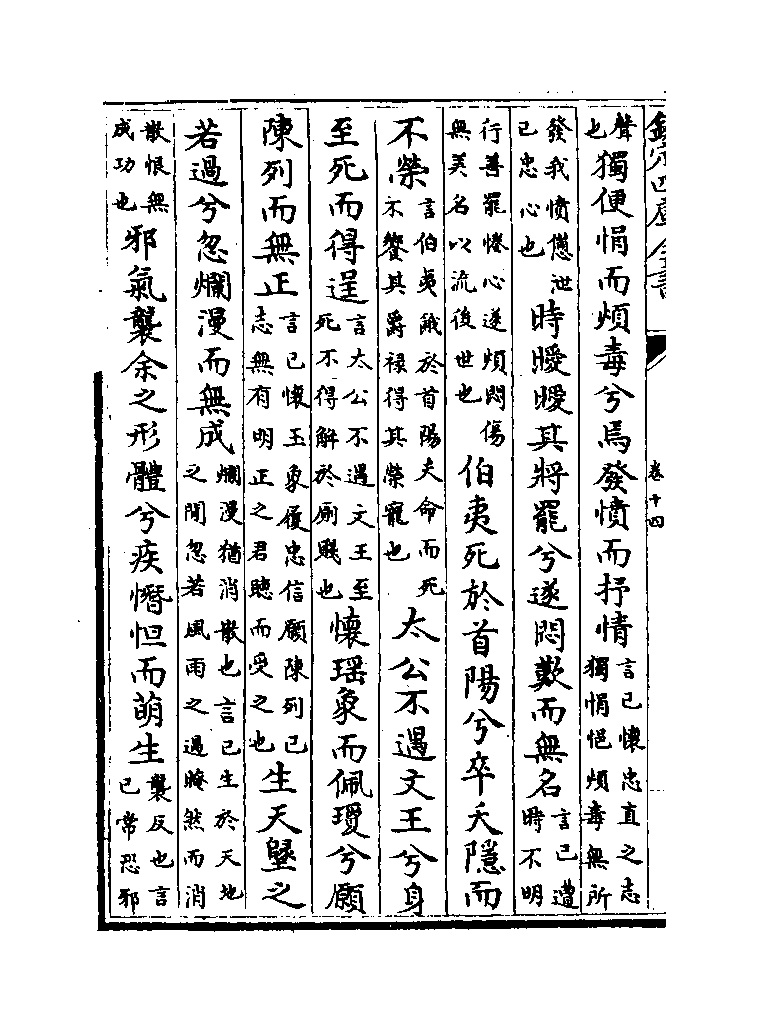 欽定四庫全書 卷十四
聲也獨便悁而煩毒兮焉發憤而抒情言已懷忠直之志獨悁悒煩毒無所
發我憤懣泄已忠心也時曖曖其將罷兮遂悶歎而無名言已遭時不明
行善罷惓心遂煩悶傷無美名以流後世也伯夷死於首陽兮卒夭隱而
不榮言伯夷餓於首陽夭命而死不饗其爵禄得其榮寵也太公不遇文王兮身
至死而得逞言太公不遇文王至死不得解於厠賤也懷瑶象而佩瓊兮願
陳列而無正言已懷玉象履忠信願陳列已志無有明正之君聽而受之也生天墬之
若過兮忽爛漫而無成爛漫猶消散也言已生於天地之間忽若風雨之過晻然而消
散恨無成功也邪氣襲余之形體兮疾憯怛而萌生襲反也言已常恐邪